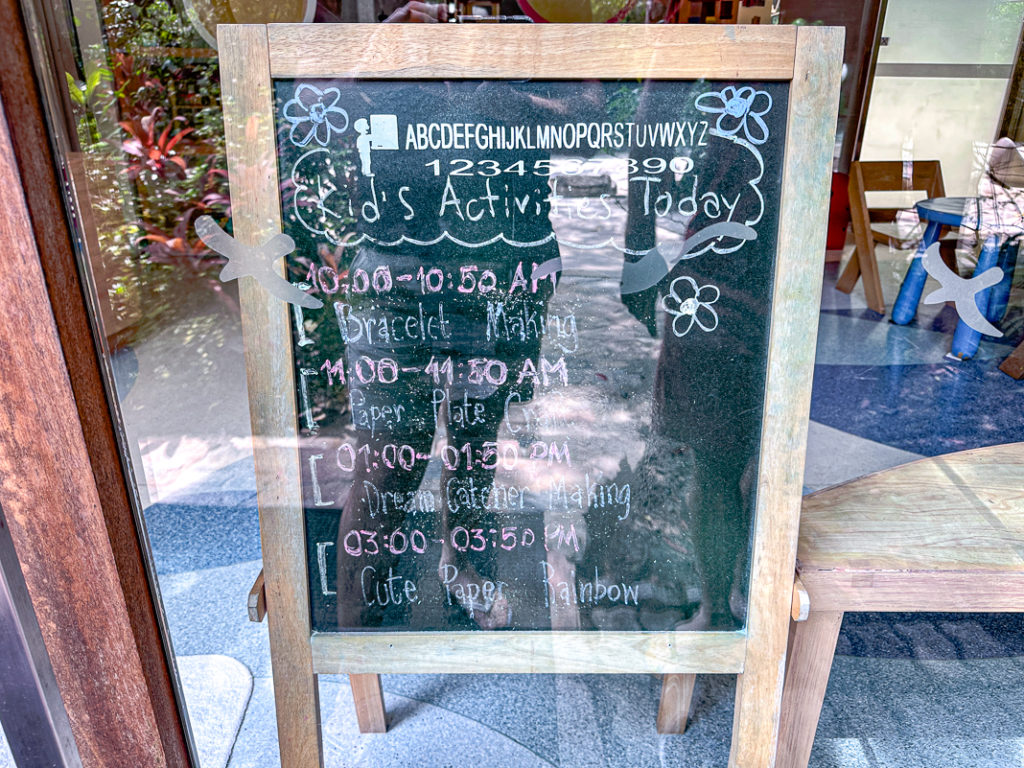 ABCDEFGHIJKLMNOPQRSTUVWXYZ
1234567890
Kid's Activities Today
10:00-10:50 AM
Bracelet Making
11:00-11:50 AM
Paper Plate
01:00-01:50 PM
Dream Catcher Making
03:00-03:50 PM
Cute Paper Rainbow